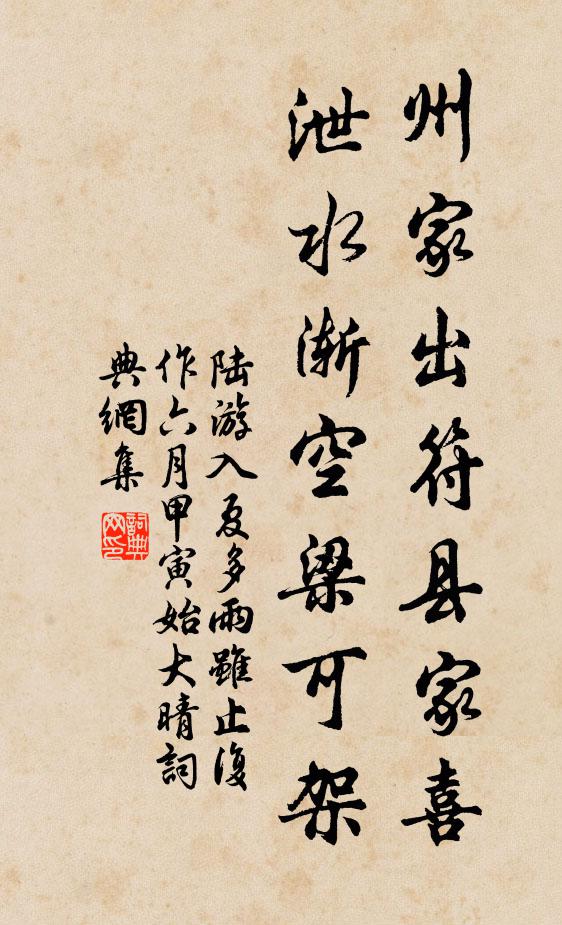 州家出符县家喜
泄水渐空梁可架
陆游入夏多雨雖止復
作六月甲寅始大晴詞
典網集
詞典网印